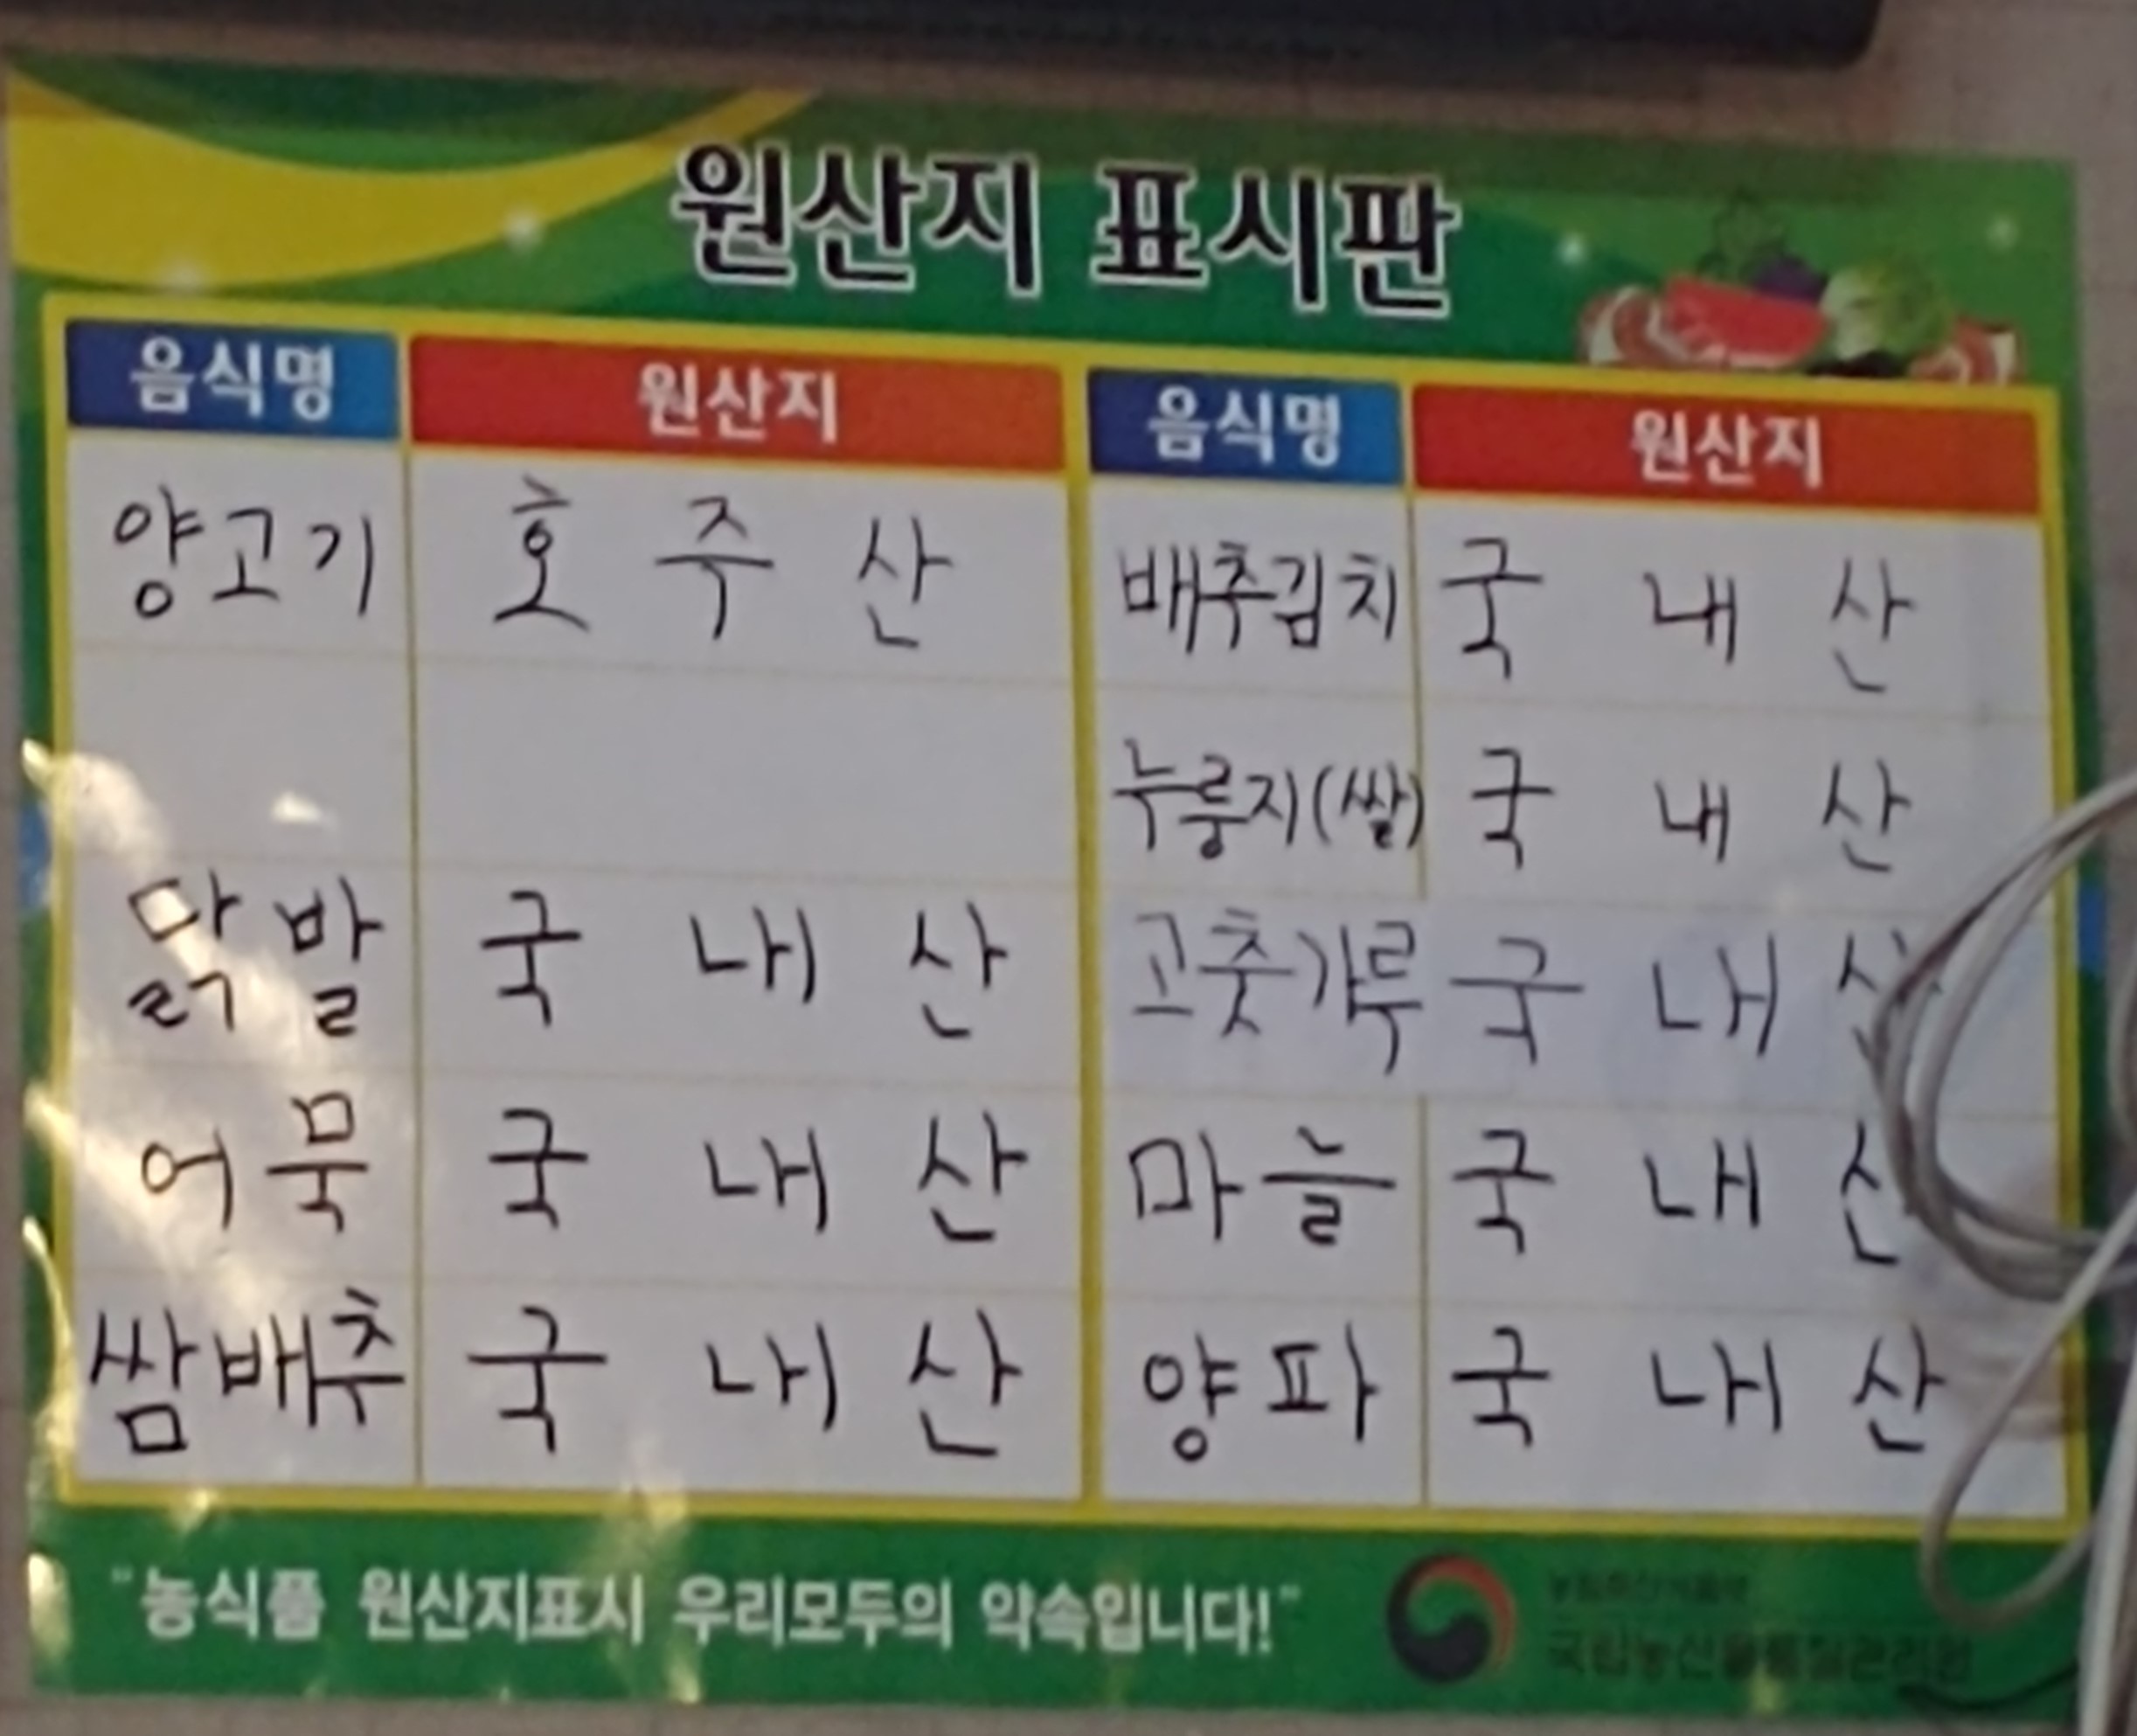 원산지 표시판
음식명 원산지 음식명 원산지
양고기 호주산 배추김치 국내산
누룽지(쌀) 국내산
닭발 국내산 고춧가루 국내산
어묵 국내산 마늘 국내산
쌈배추 국내산 양파 국내산
"농식품 원산지표시 우리모두의 약속입니다!"
농림축산식품부
국립농산물품질관리원